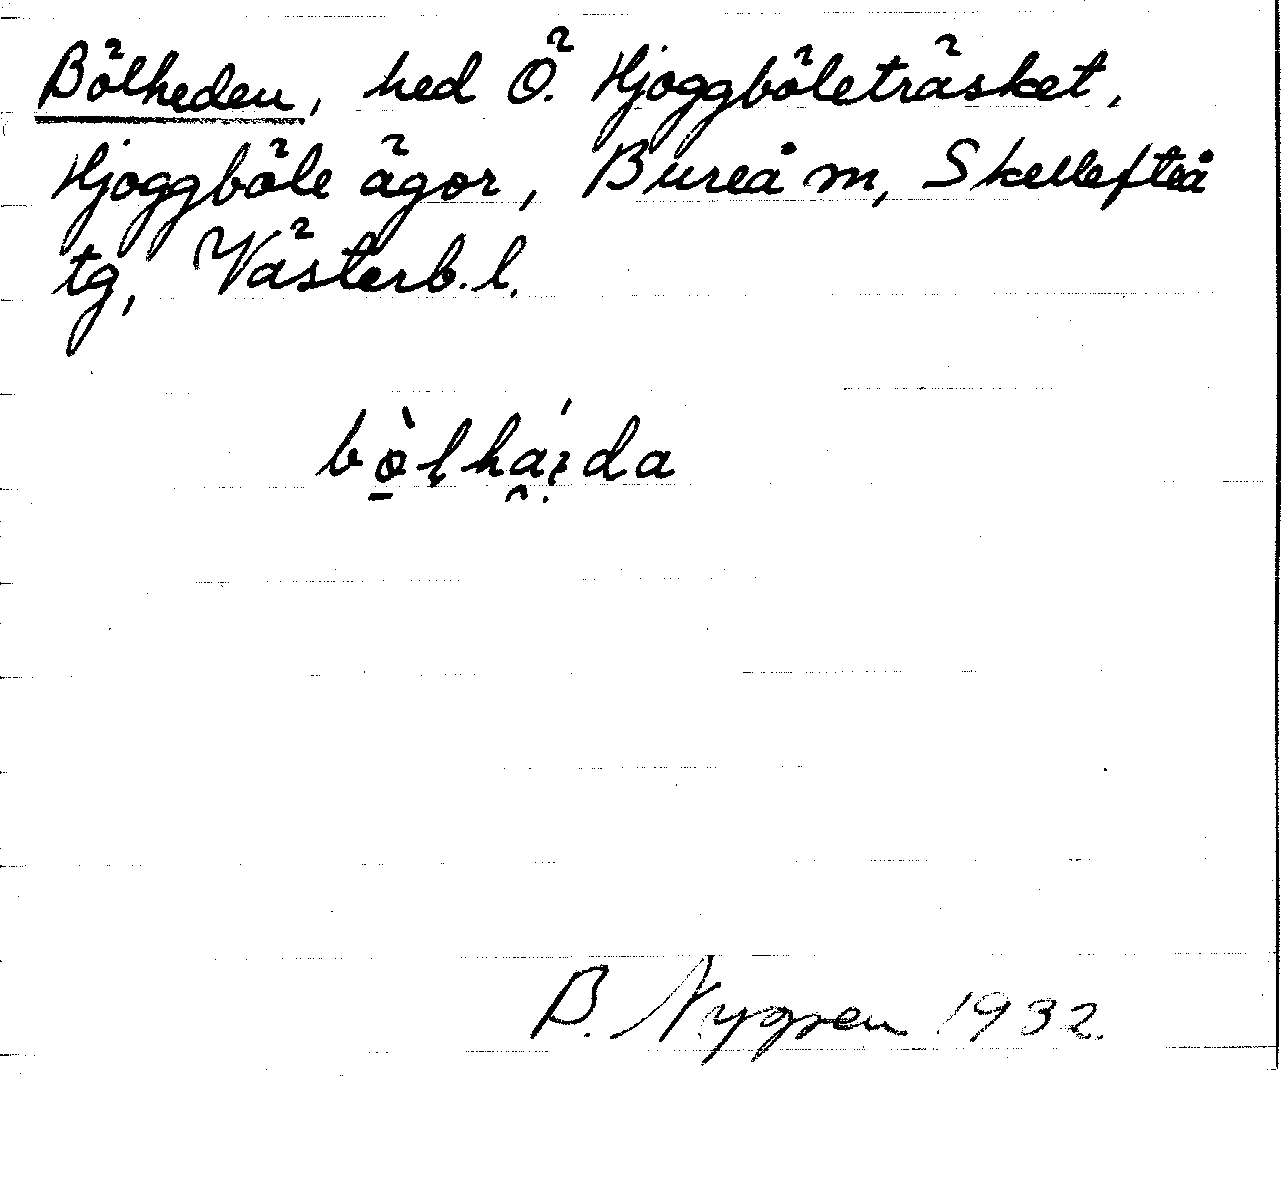 Bölheden, hed Ö. Hjoggböleträsket,
Hjoggböle ägor, Bureå m, Skellefteå
tg, Västerb. l.
bò̱lhá̯ı̣da
B. Nygren 1932.